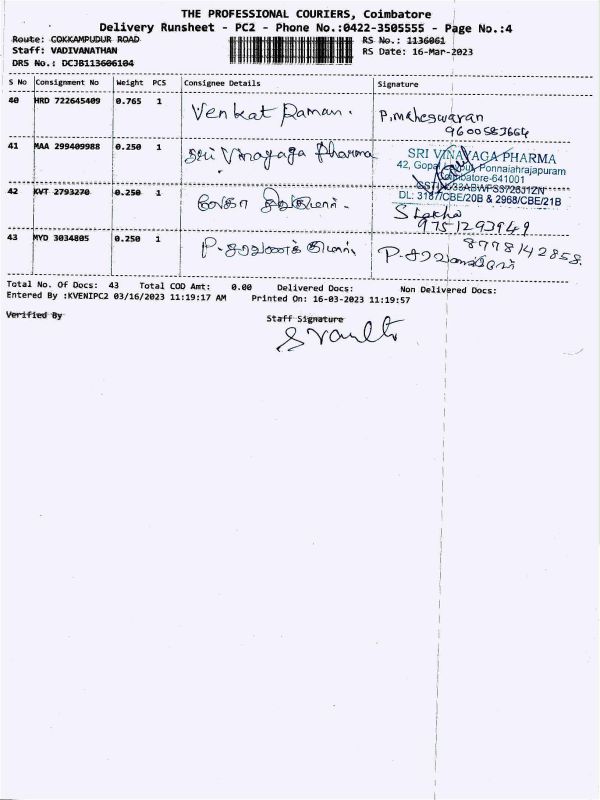 THE PROFESSIONAL COURIERS, Coimbatore
Delivery Runsheet - PC2 - Phone No.:0422-3505555 - Page No.:4
Route: COKKAMPUDUR ROAD RS No.: 1136061
Staff: VADIVANATHAN RS Date: 16-Mar-2023
DRS No.: DCJB113606104
S No Consignment No Weight PCS Consignee Details Signature
40 HRD 722645409 0.765 1 Venkat Raman. P. maheswaran
9600583664
41 MAA 299409988 0.250 1 Sri Vinayaga Pharma SRI VINAYAGA PHARMA
42, Gopal Ponnaiahrajapuram
Coimbatore-641001
DL: 3187/CBE/20B & 2968/CBE/21B
42 KVT 2793270 0.250 1
9751293949
43 MYD 3034805 0.250 1 P. சரவணக்குமார். 8778142858.
Total No. Of Docs: 43 Total COD Amt: 0.00 Delivered Docs: Non Delivered Docs:
Entered By :KVENIPC2 03/16/2023 11:19:17 AM Printed On: 16-03-2023 11:19:57
Verified By Staff Signature